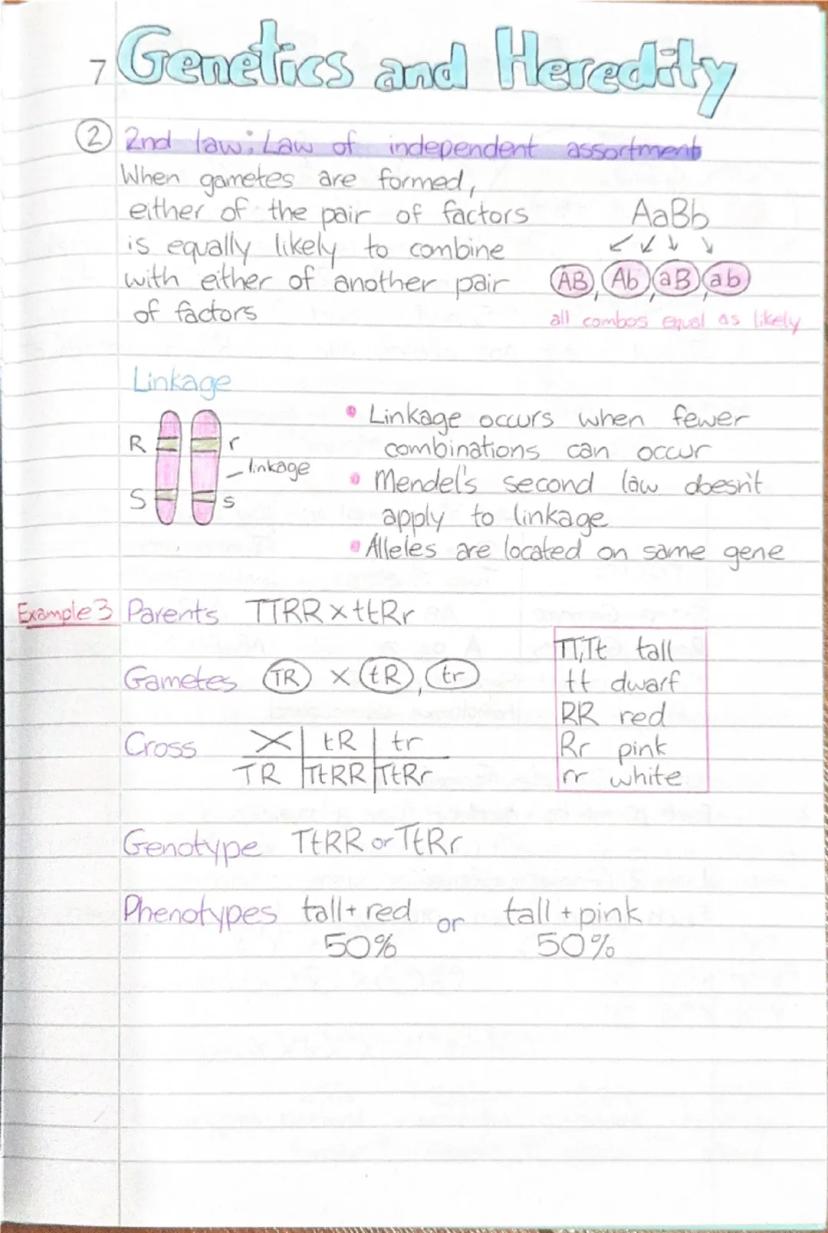 7 Genetics and Heredity
② 2nd law: Law of independent assortment
When gametes are formed,
either of the pair of factors
is equally likely to combine
with either of another pair
of factors
AaBb
AB, Ab, aB, ab
all combos equal as likely
Linkage
R r
linkage
S s
• Linkage occurs when fewer
combinations can occur
• Mendel's second law doesn't
apply to linkage
• Alleles are located on same gene
Example 3 Parents TTRR x ttRr
Gametes TR x tR, tr
Cross X tR tr
TR TtRR TtRr
TT,Tt tall
tt dwarf
RR red
Rr pink
rr white
Genotype TtRR or TtRr
Phenotypes tall + red or tall + pink
50% 50%